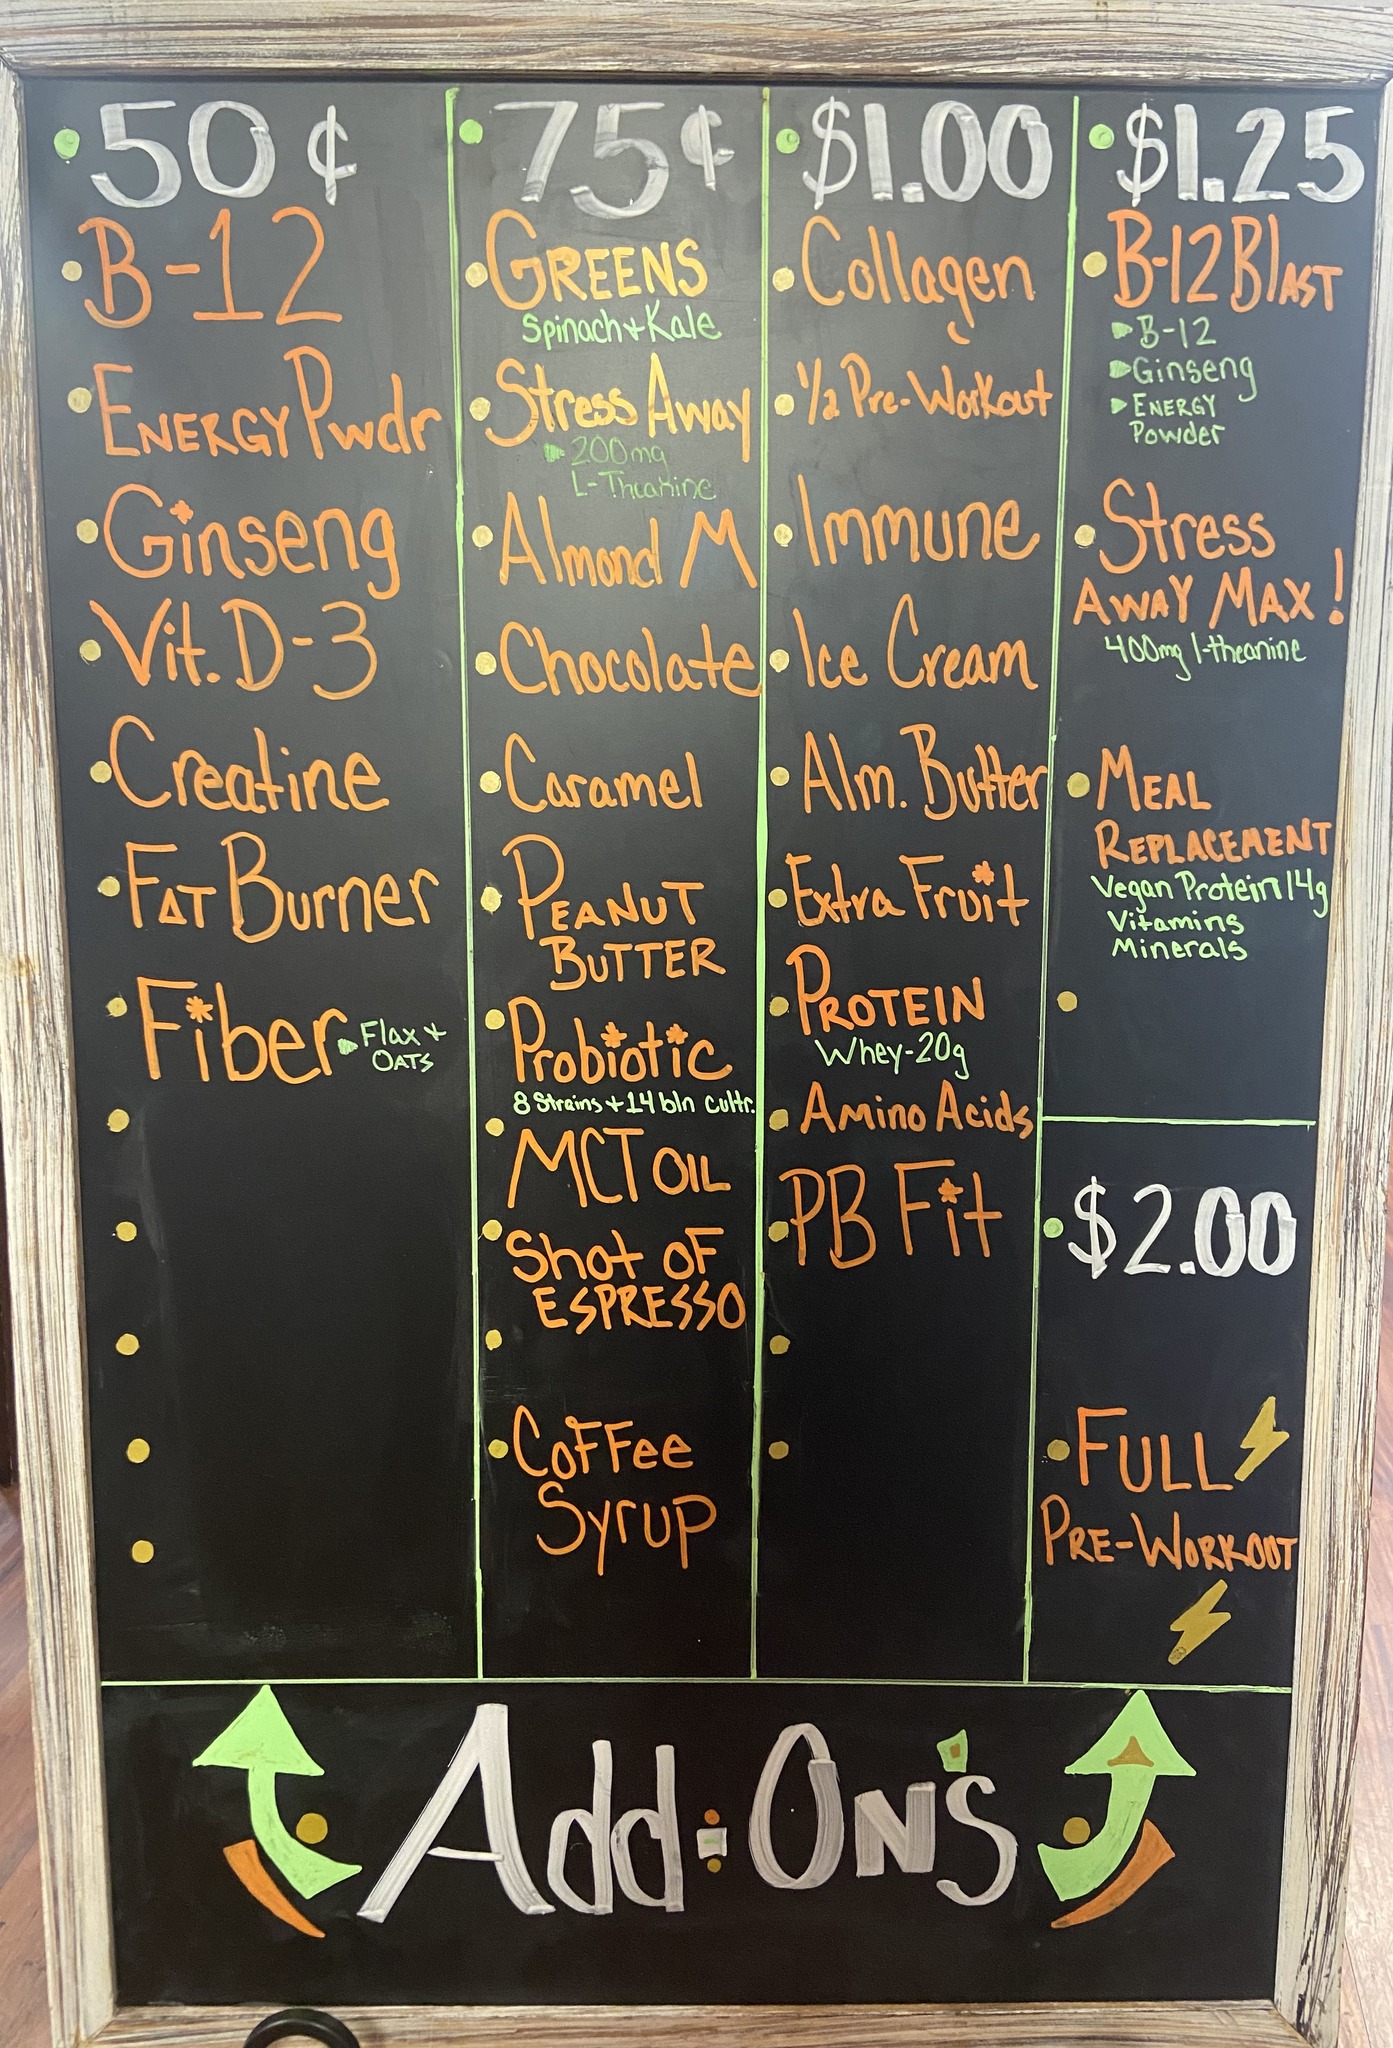 50¢
B-12
ENERGY Pwdr
Ginseng
Vit. D-3
Creatine
FAT Burner
Fiber
Flax +
OATS
75¢
GREENS
Spinach + Kale
Stress Away
200mg
L-Theanine
Almond M
Chocolate
Caramel
PEANUT
BUTTER
Probiotic
8 Strains + 14 bln cultr.
MCT OIL
Shot OF
ESPRESSO
CoFFee
Syrup
$1.00
Collagen
1/2 Pre-Workout
Immune
Ice Cream
Alm. Butter
Extra Fruit
PROTEIN
Whey-20g
Amino Acids
PB Fit
$1.25
B-12 Blast
B-12
Ginseng
ENERGY
Powder
Stress
AWAY MAX!
400mg l-theanine
MEAL
REPLACEMENT
Vegan Protein 14g
Vitamins
Minerals
$2.00
FULL
PRE-WORKOUT
Add-On's